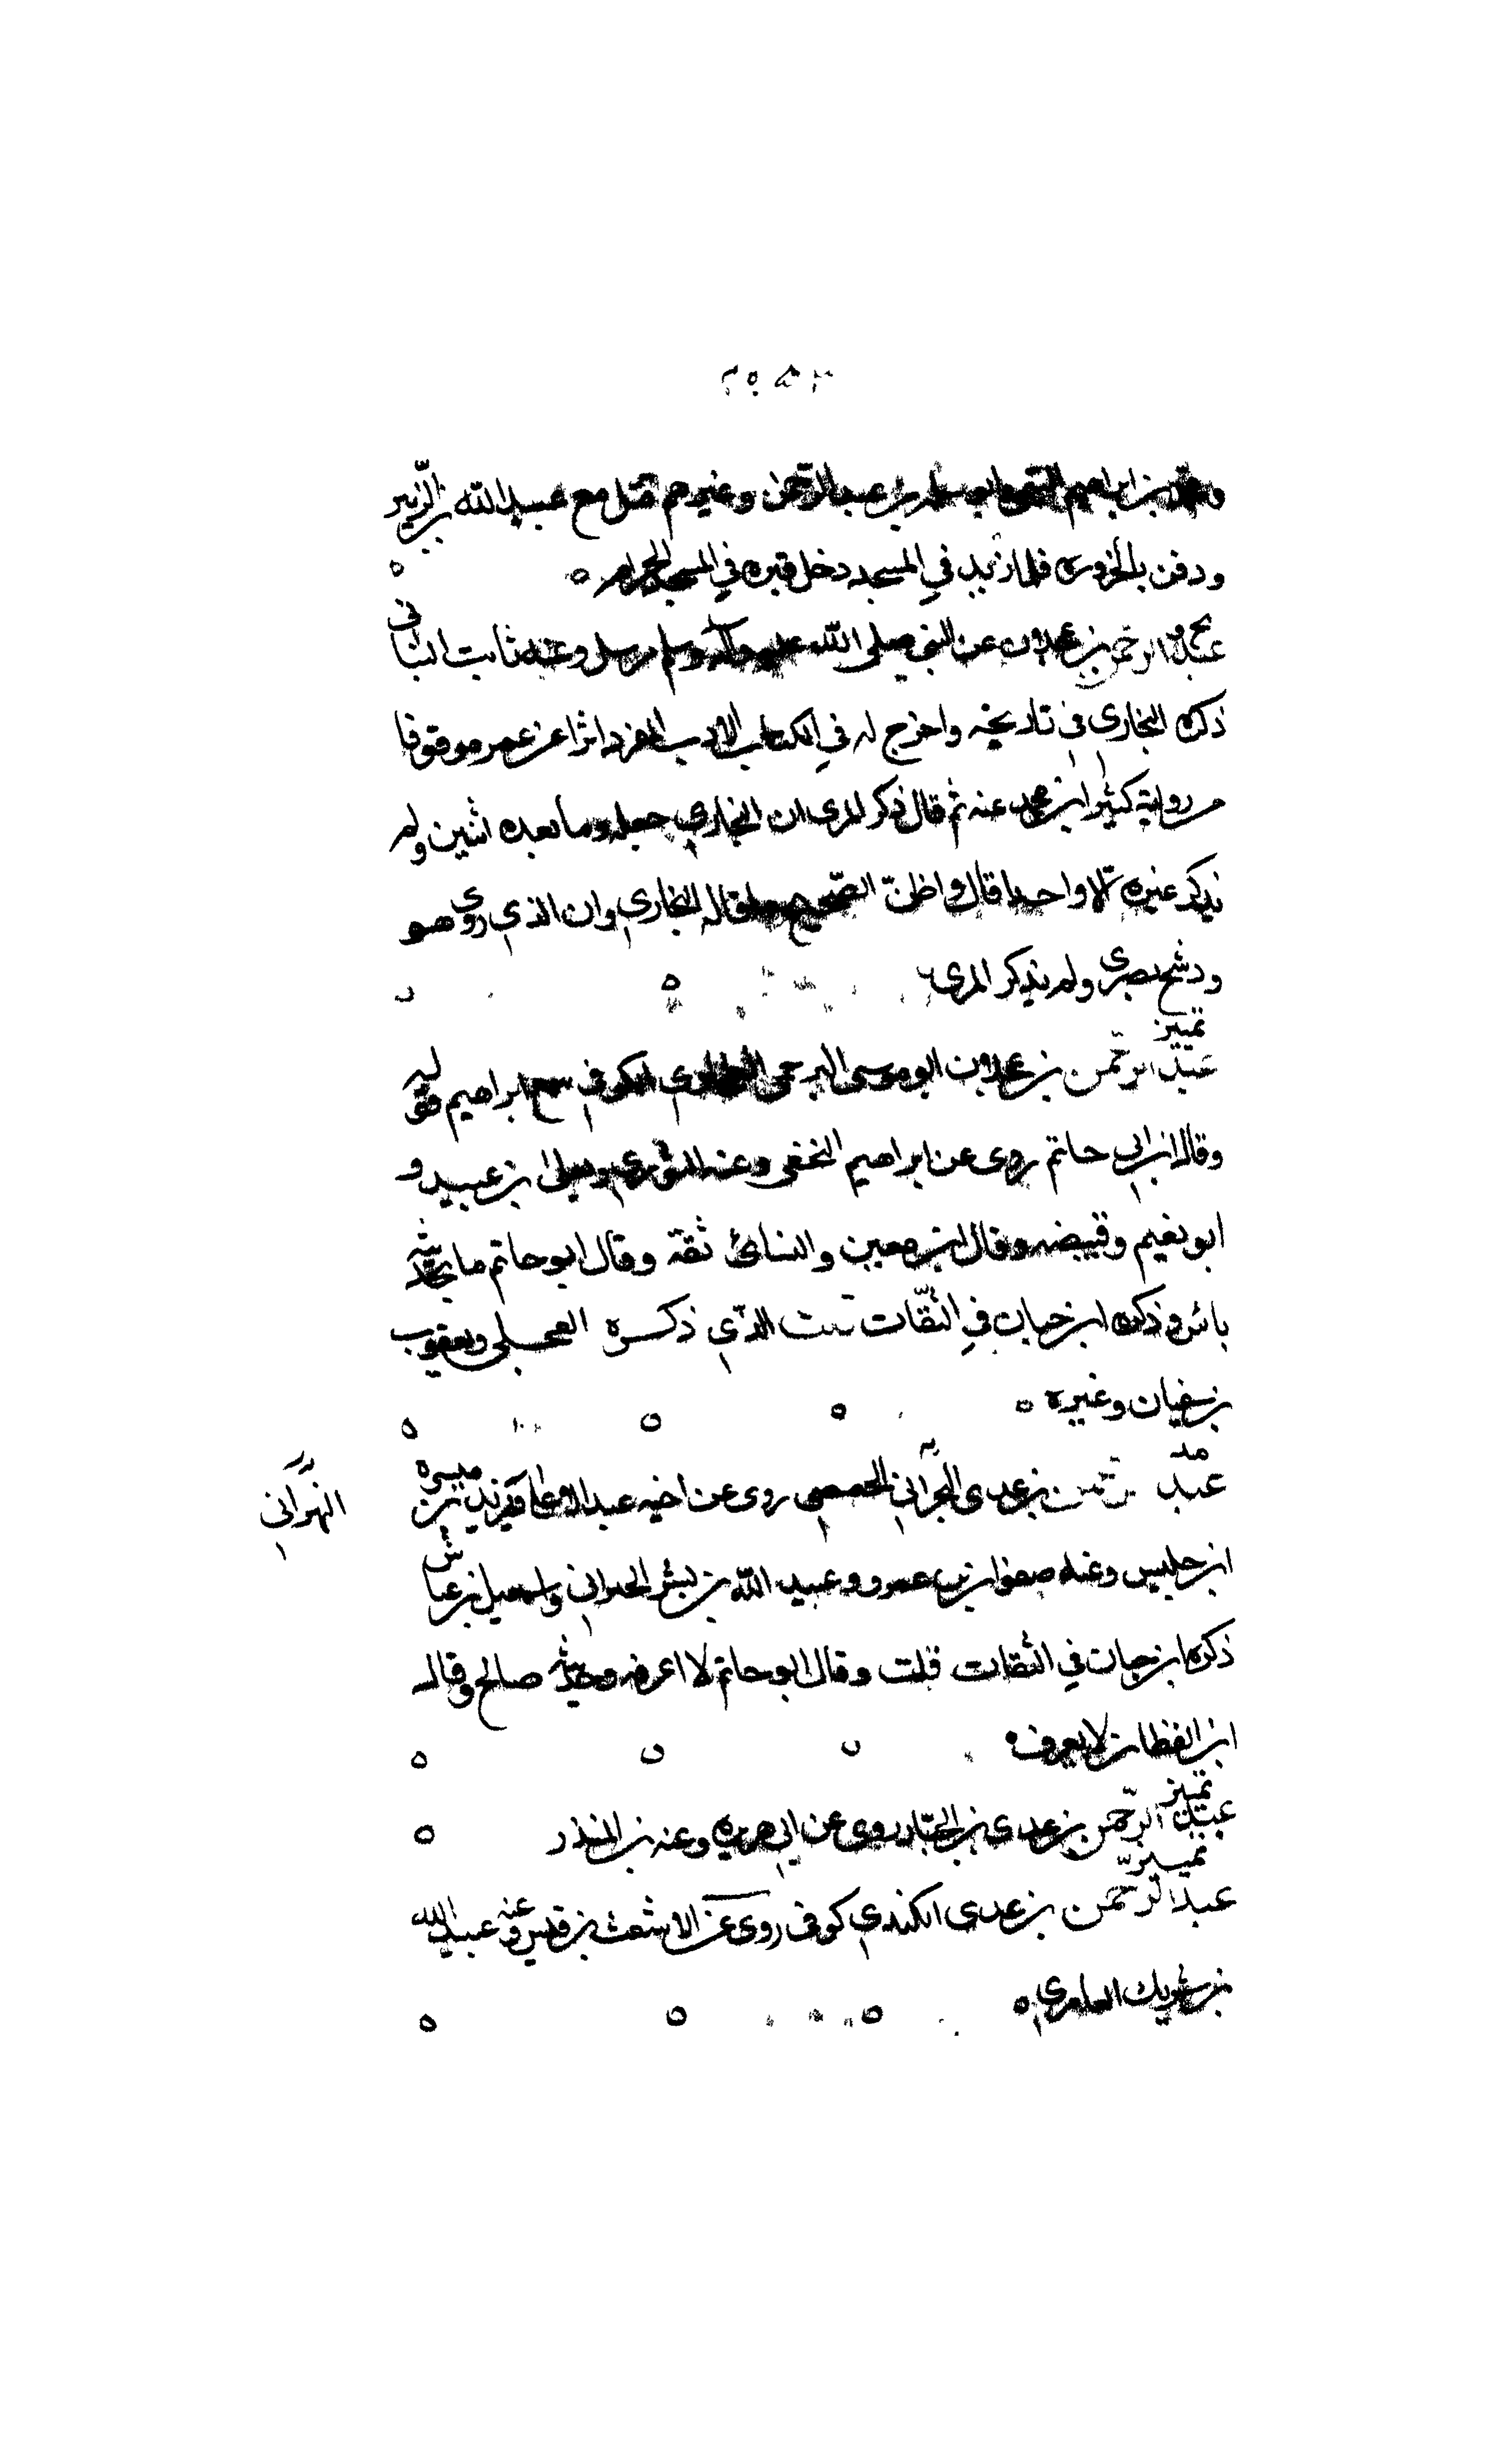 ومحمد بن ابراهيم التيمي وابو سلمه بن عبد الرحمن وغيرهم قتل مع عبد الله بن الزبير
ودفن بالحزوره فلما زيد في المسجد دخل قبره في المسجد الحرام
عبد الرحمن بن عجلان عن النبي صلى الله عليه وآله وسلم مرسل وعنه ثابت البناني
ذكره البخاري في تاريخه واخرج له في الكتاب الادب المفرد اثرا عن عمر موقوفا
من رواية كثير ابن محمد عنه ثم قال ذكر المزى ان البخاري جعله وما بعده اثنين ولم
يذكر غيره الا واحدا قال واظن الصحيح ما قاله البخاري وان الذي روى هو
بصرى ولم يذكر المزى
تمييز
عبد الرحمن بن عجلان ابو موسى البرجمى الطحاوي الكوفي سمع ابراهيم قوله
وقال ابن ابي حاتم روى عن ابراهيم النخعى وعنه الثوري ويعلى ابن عبيد و
ابو نعيم وقبيصه وقال ابن معين والنسائ ثقة وقال ابو حاتم ما بحديثه
باس وذكره ابن حبان في الثقات قلت الذي ذكره العجلى ويعقوب
بن سفيان وغيره
مد
عبد الرحمن بن عدى البحراني الحمصي روى عن اخيه عبد الاعلى ويزيد بن ميسره
البهراني
ابن حلبس وعنه صفوان بن عمرو وعبيد الله بن بشر الحبراني واسمعيل بن عياش
ذكره ابن حبان في الثقات قلت وقال ابو حاتم لا اعرفه وحديثه صالح وقال
ابن القطان لا يعرف
تمييز
عبد الرحمن بن عدى بن الخيار روى عن ابي هريره وعنه بن المنذر
تمييز
عبد الرحمن بن عدى الكندي كوفى روى عن الاشعث بن قيس وعنه عبد الله
بن شريك العامري